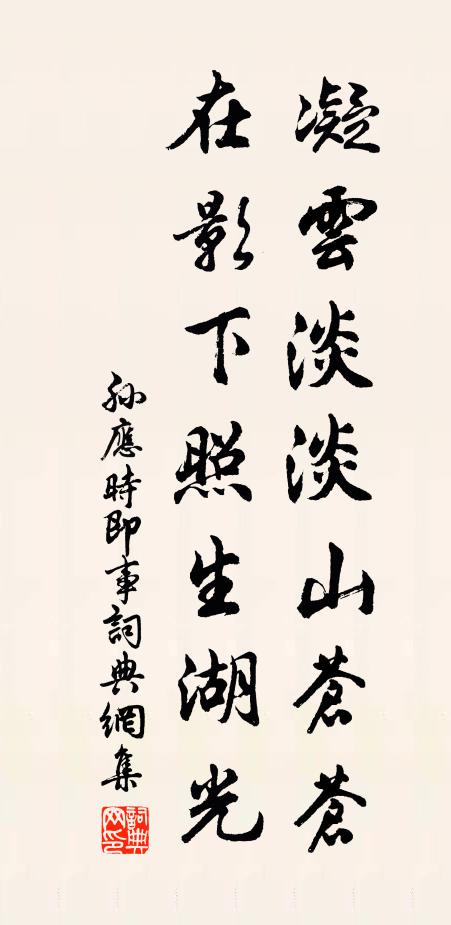 凝雲淡淡山蒼蒼
在影下照生湖光
孫應時即事詞典網集
詞典網印